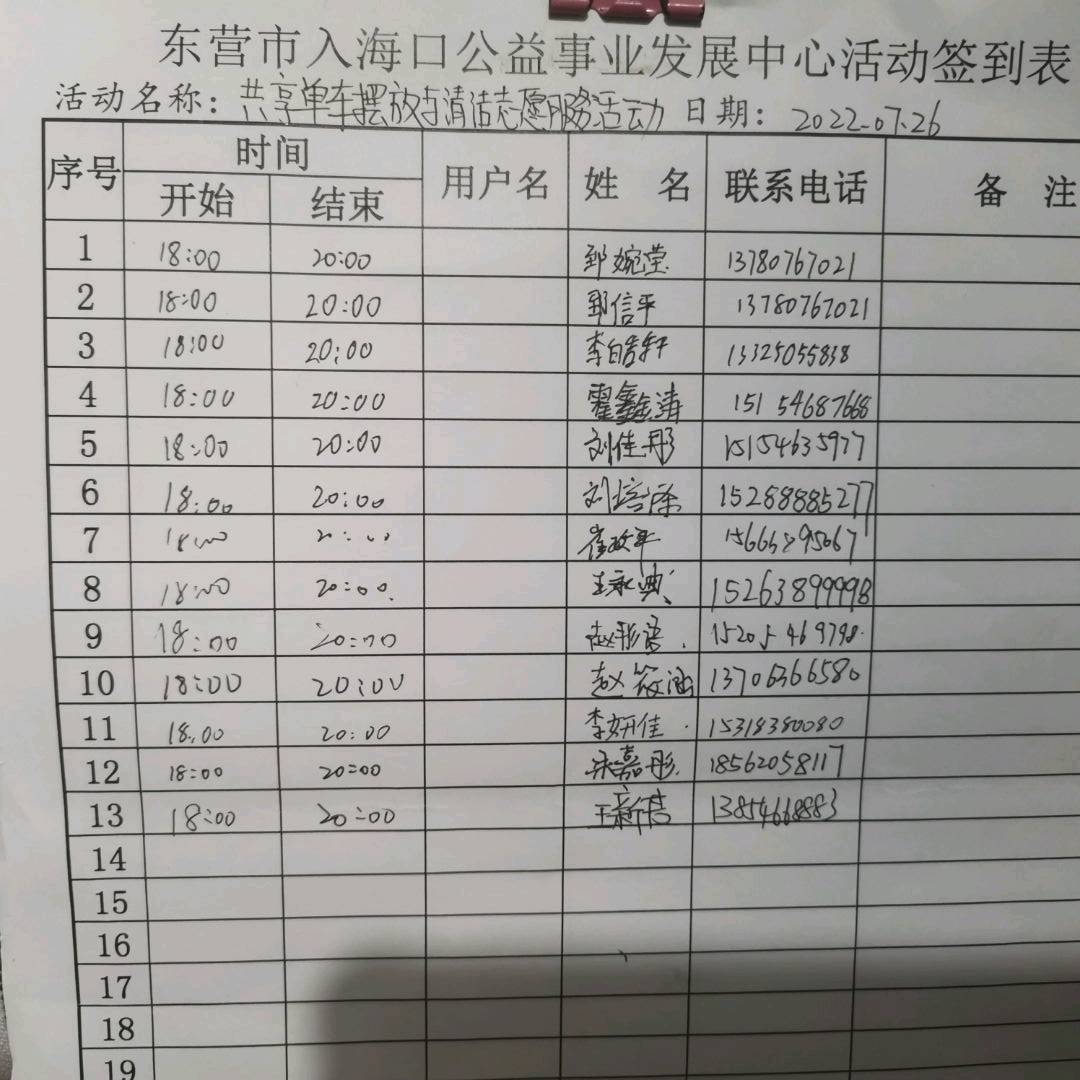 东营市入海口公益事业发展中心活动签到表
活动名称：共享单车摆放与清洁志愿服务活动 日期：2022-07-26
序号 时间 用户名 姓 名 联系电话 备 注
开始 结束
1 18:00 20:00 邹婉莹 13780767021
2 18:00 20:00 邹信平 13780767021
3 18:00 20:00 李皓轩 13325055838
4 18:00 20:00 霍鑫涛 15154687668
5 18:00 20:00 刘佳彤 15154635977
6 18:00 20:00 刘培 15288885277
7 18:00 20:00 崔政平
8 18:00 20:00 王永典 15263899998
9 18:00 20:00 赵彤 15205469798
10 18:00 20:00 赵筱涵 13706366580
11 18:00 20:00 李妍佳 15318380080
12 18:00 20:00 宋嘉彤 18562058117
13 18:00 20:00 王新 13854668883
14
15
16
17
18
19